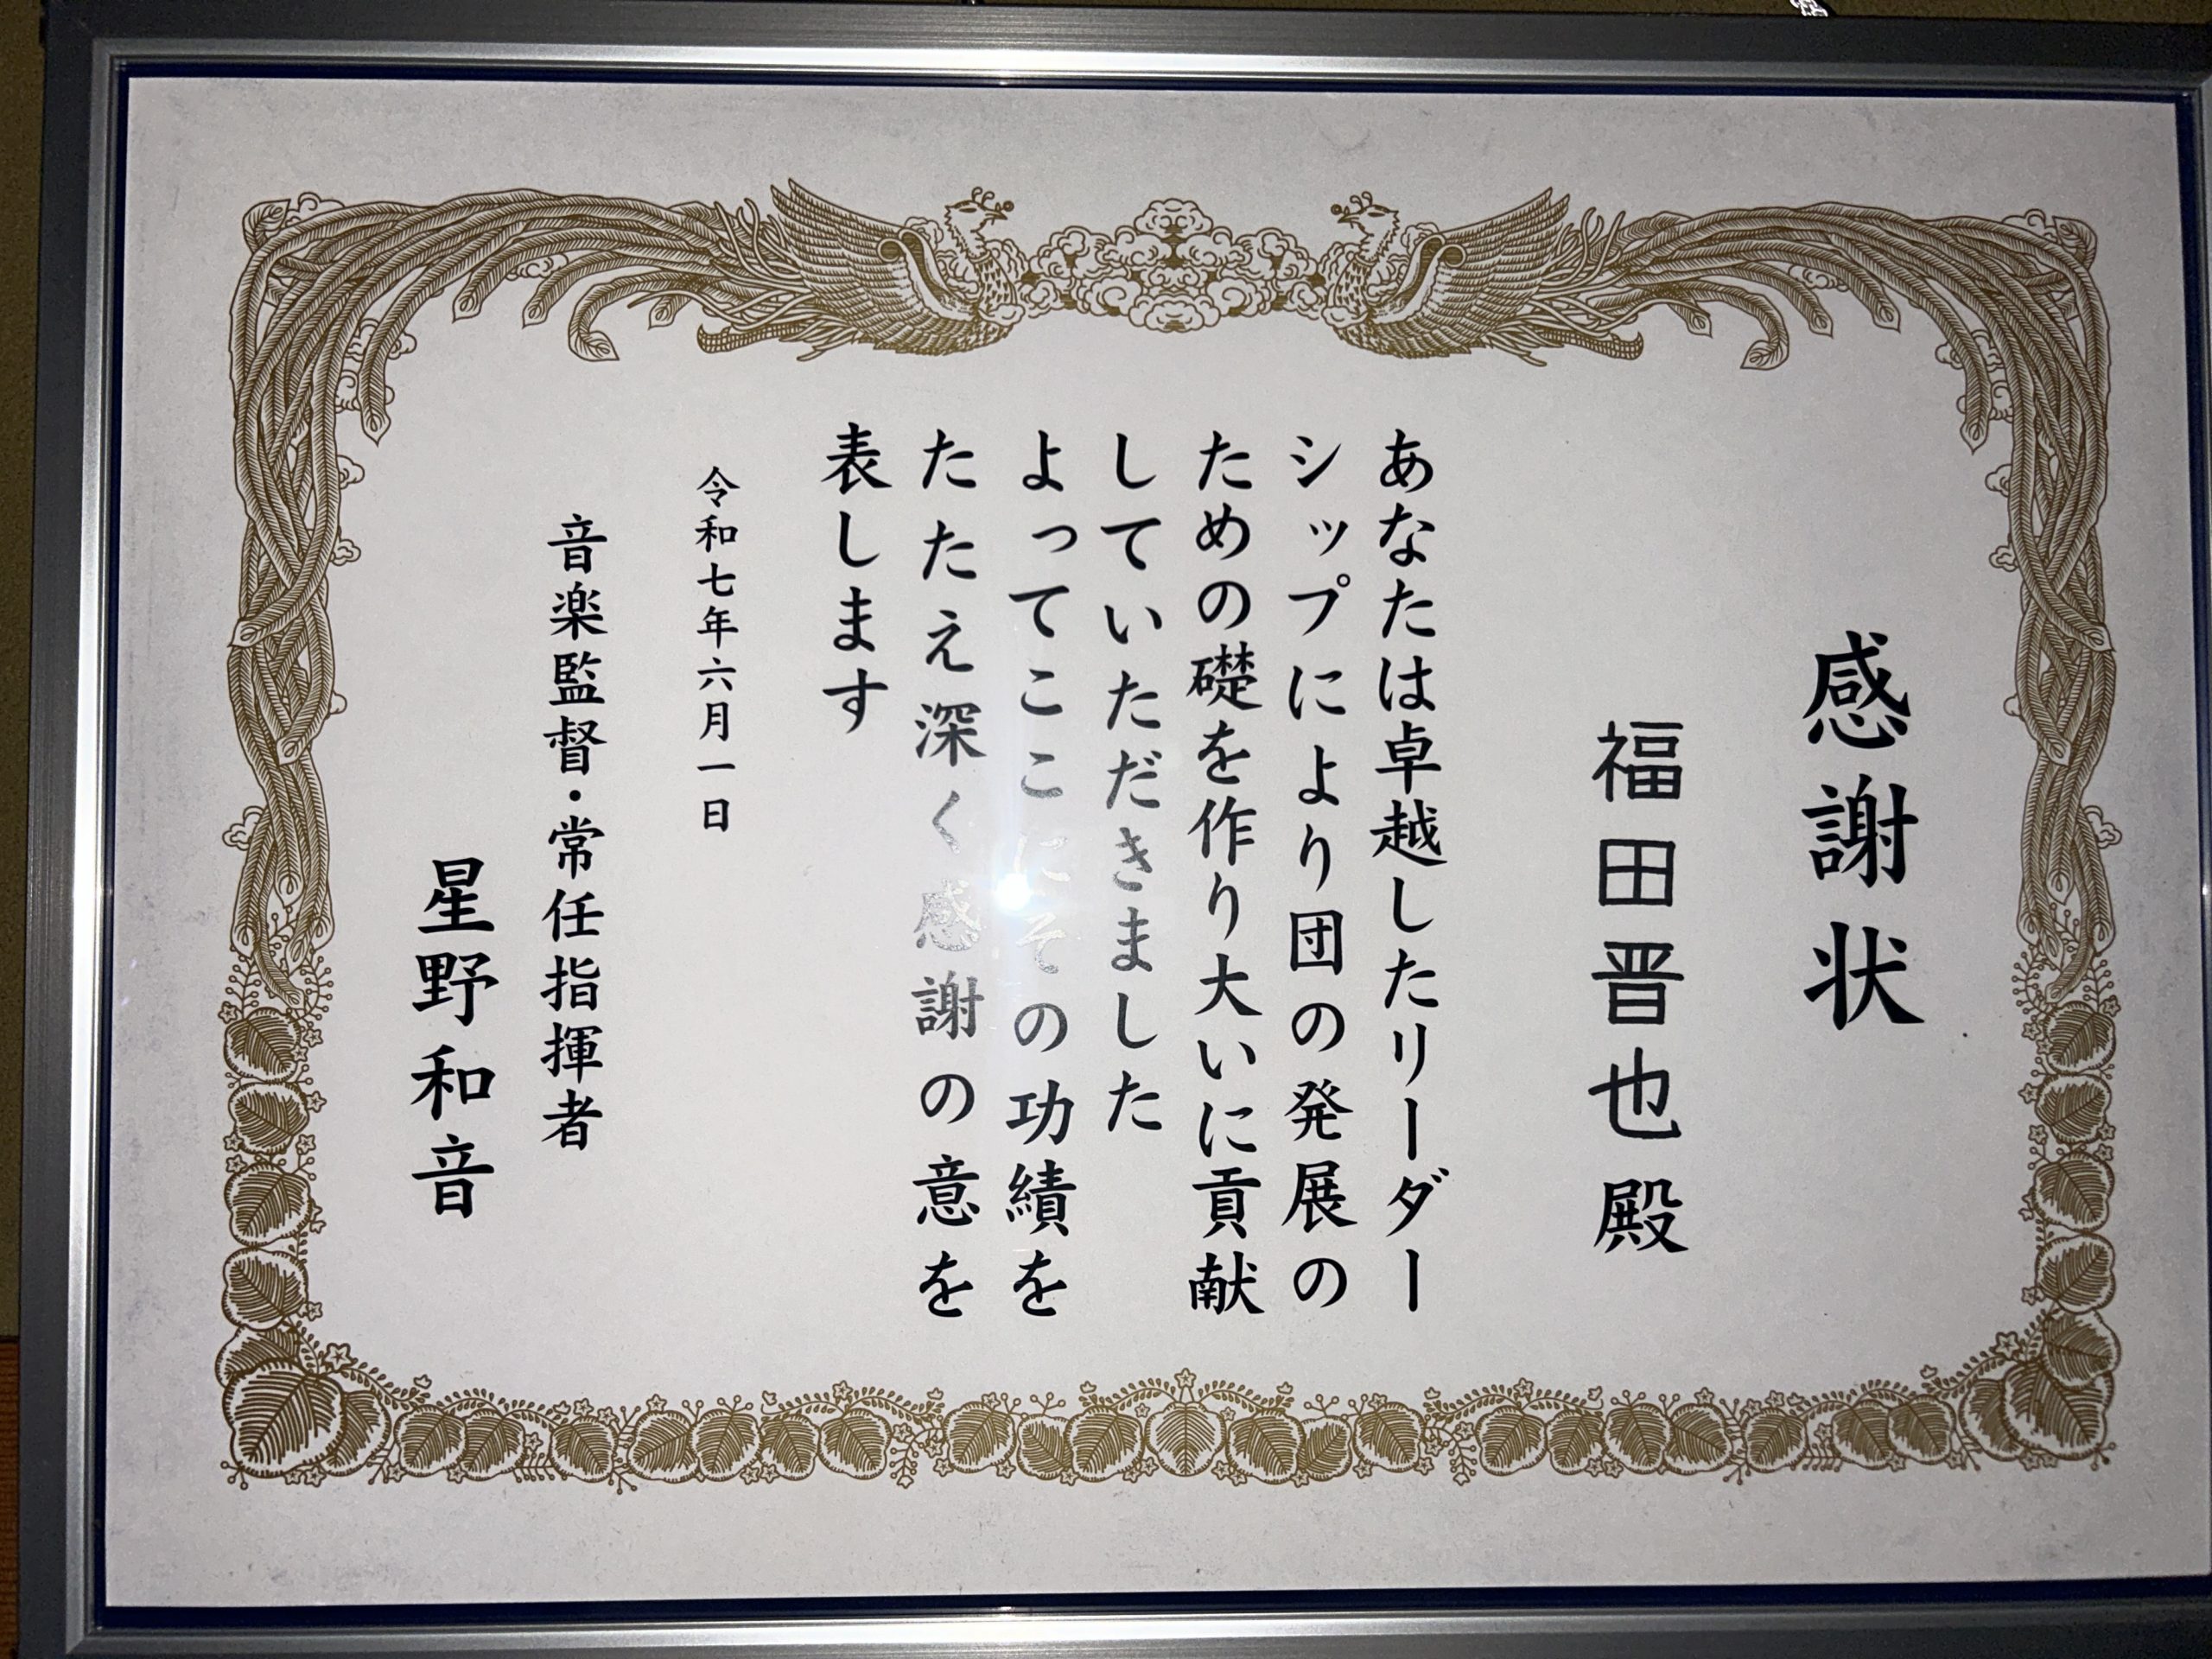 感謝状
福田晋也殿
あなたは卓越したリーダー
シップにより団の発展の
ための礎を作り大いに貢献
していただきました
よってここにその功績を
たたえ深く感謝の意を
表します
令和七年六月一日
音楽監督・常任指揮者
星野和音